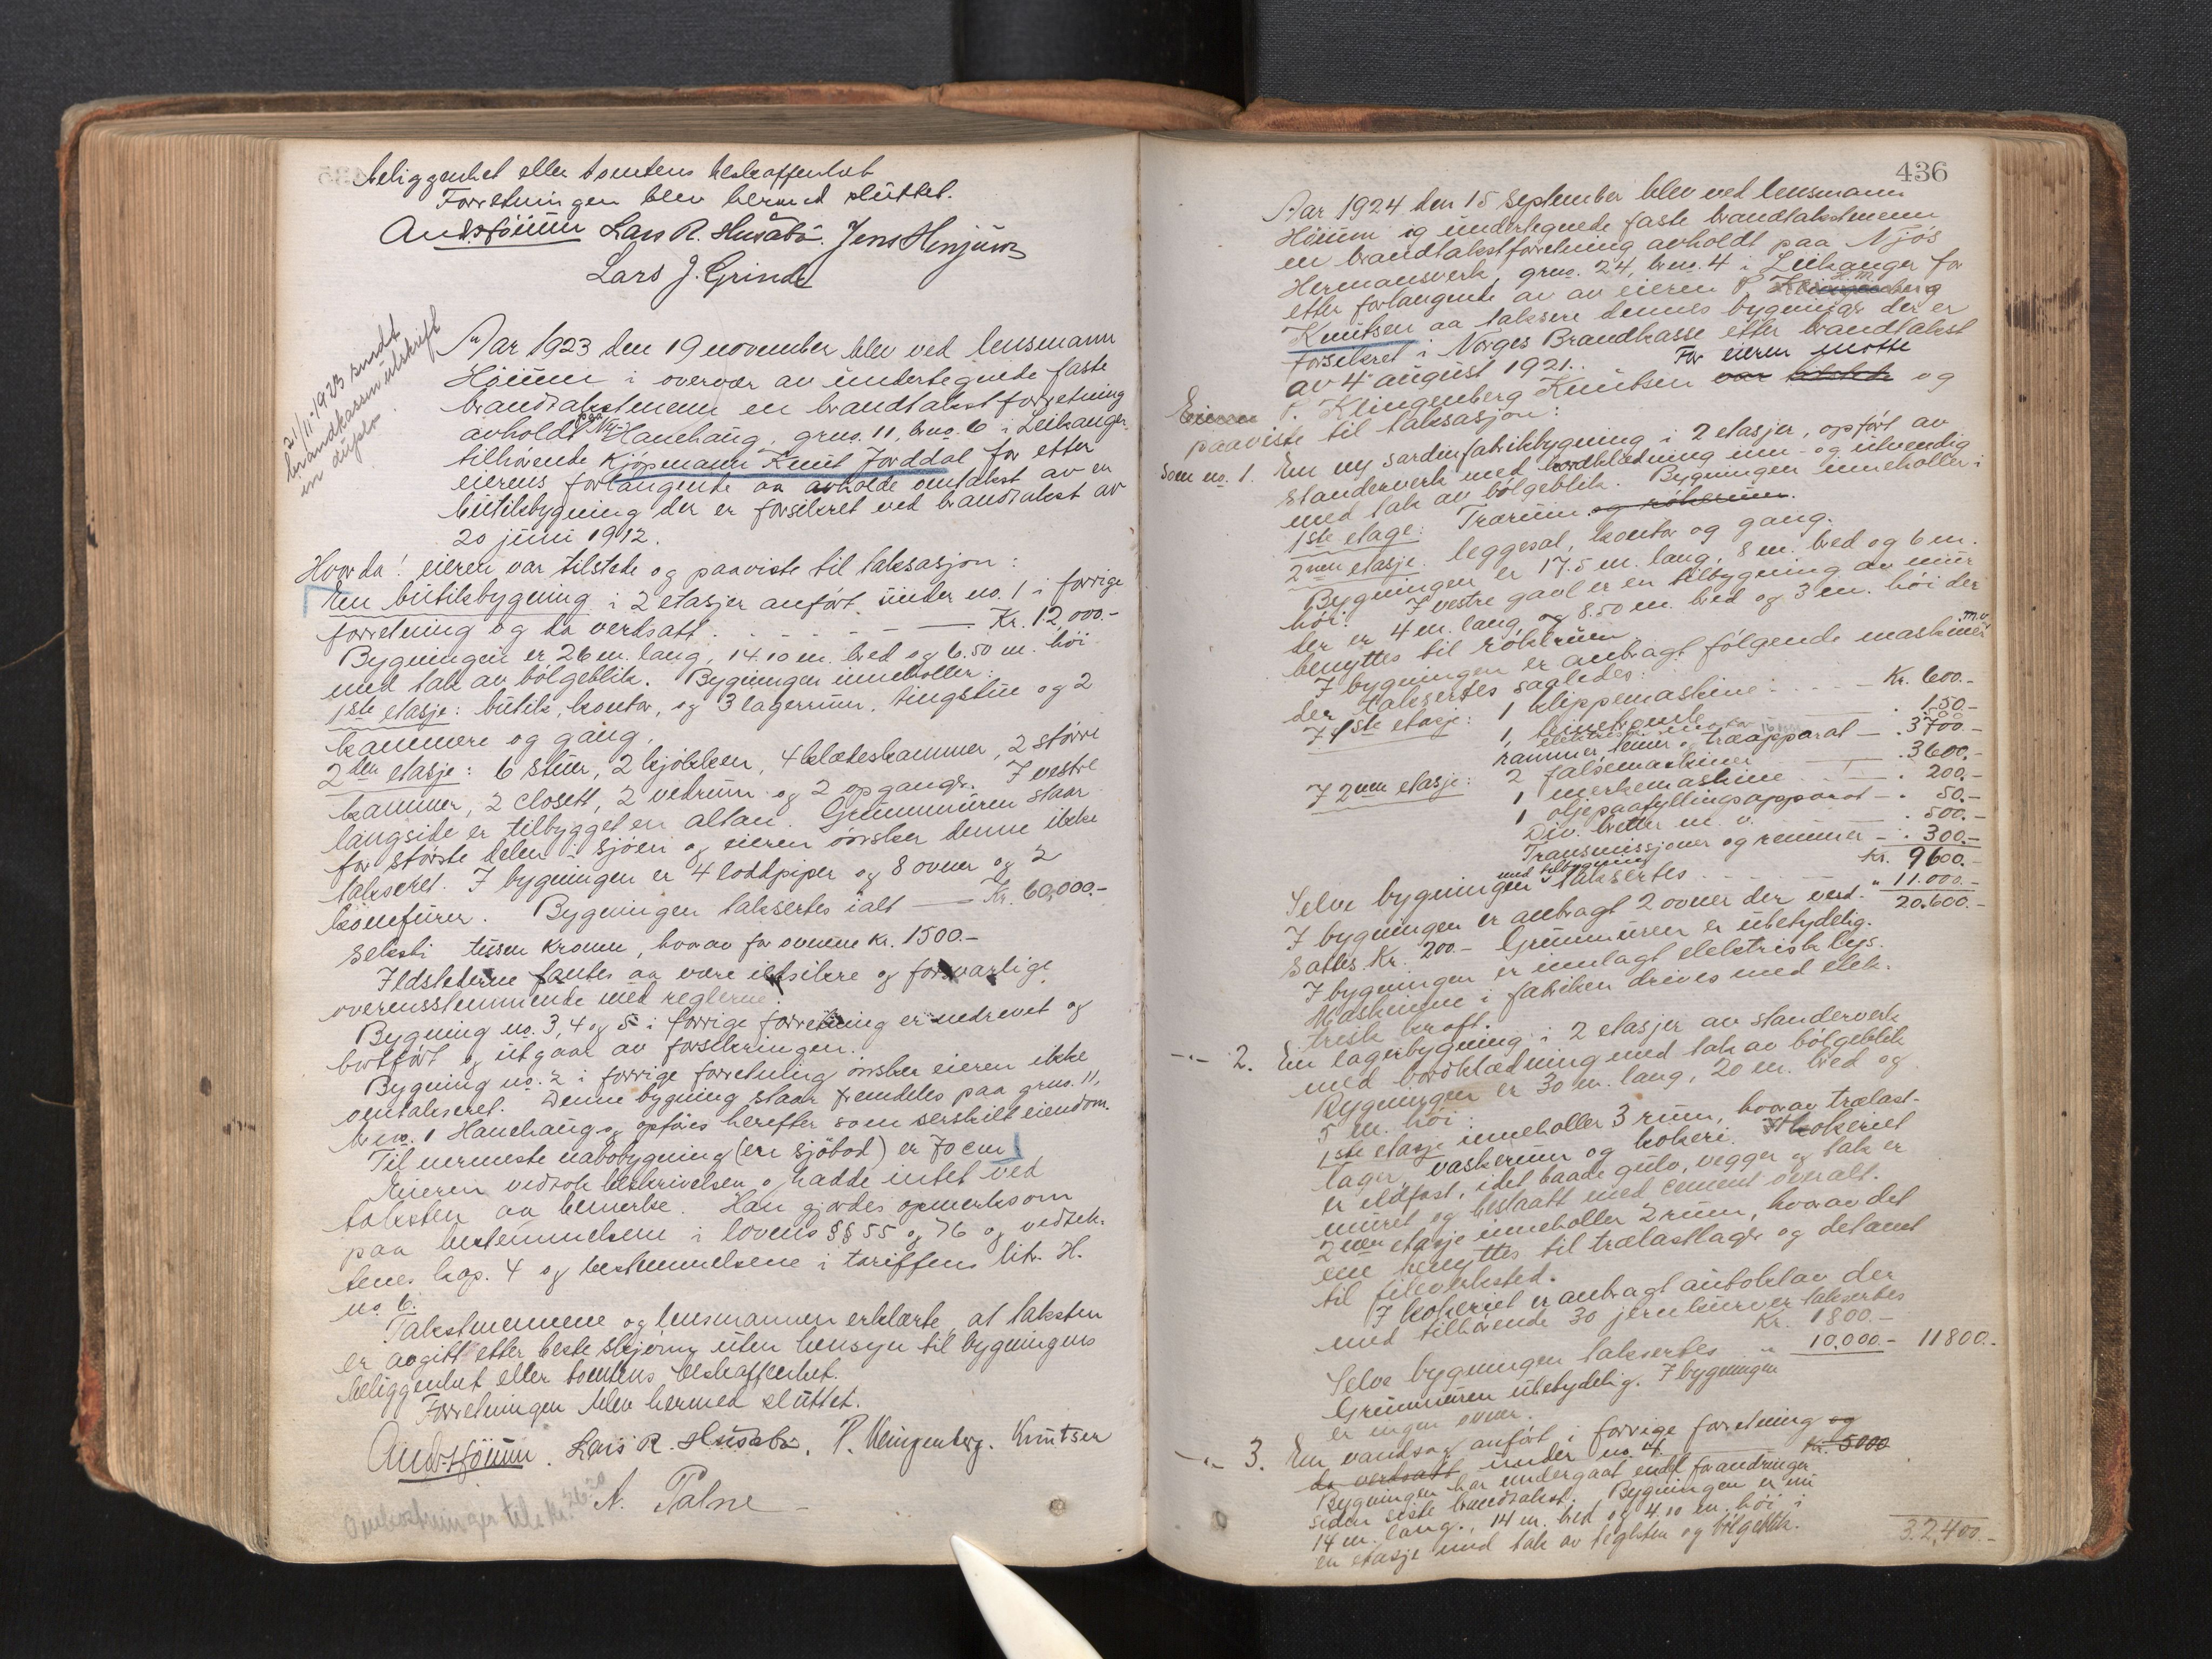 beliggenhet eller tomtens beskaffenhet
Forretningen blev hermed sluttet.
And. Höium Lars R. Husabö. Jens Henjum
Lars J. Grinde
21/11-1923 sendt
brandkassen utskrift
in duplo.
Aar 1923 den 19 november blev ved lensmann
Höium i overvær av undertegnede faste
brandtakstmenn en brandtakstforretning
avholdt paa Ny-Hanehaug, grno. 11, brno. 6 i Leikanger
tilhörende Kjöpmann Knut Jorddal for efter
eierens forlangende aa avholde omtakst av en
butikbygning der er forsikret ved brandtakst av
20 juni 1912.
Hvorda! eieren var tilstede og paaviste til taksasjon:
En butikbygning i 2 etasjer anfört under no. 1 i forrige
forretning og da verdsatt. - - - - - Kr. 12,000.-
Bygningen er 26 m. lang, 14.10 m. bred og 6.50 m. höi
med tak av bölgeblik. Bygningen inneholler:
1ste etasje: butik, kontor, og 3 lagerrum, tingstue og 2
kammere og gang.
2den etasje: 6 stuer, 2 kjökken, 4 klædeskammer, 2 större
kammer, 2 closett, 2 vedrum og 2 opganger. I vestre
langside er tilbygget en altan. Grunnmuren staar
for störste delen i sjöen og eieren önsker denne ikke
taksert. I bygningen er 4 loddpiper og 8 ovner og 2
komfurer. Bygningen taksertes ialt — Kr. 60,000.-
seksti tusen kroner, hvorav for ovnene kr. 1500.-
Ildstederne fantes aa være ildsikre og forsvarlige,
overensstemmende med reglerne.
Bygning no. 3, 4 og 5 i forrige forretning er nedrevet og
bortfört og utgaar av forsikringen.
Bygning no. 2 i forrige forretning önsker eieren ikke
omtaksert. Denne bygning staar fremdeles paa grno. 11,
brno. 1 Hanehaug og opföres herefter som serskilt eiendom.
Til nermeste nabobygning (en sjöbod) er 70 cm
Eieren vedtok beskrivelsen og hadde intet ved
taksten aa bemerke. Han gjordes opmerksom
paa bestemmelsene i lovens §§ 55 og 76 og vedtek-
tenes kap. 4 og bestemmelsene i tariffens litr. H.
no. 6.
Takstmennene og lensmannen erklærte, at taksten
er avgitt efter beste skjönn uten hensyn til bygningens
beliggenhet eller tomtens beskaffenhet.
Forretningen blev hermed sluttet.
And. Höium. Lars R. Husabö. P. Klingenberg. Knutsen
N. Talne
Omkostninger tils. kr. 26.20
436
Aar 1924 den 15 september blev ved lensmann
Höium og undertegnede faste brandtakstmenn
en brandtakstforretning avholdt paa Njös
Hermansverk, grno. 24, brno. 4 i Leikanger for
efter forlangende av av eieren P. Klingenberg H. M.
Knutsen aa taksere dennes bygninger der er
forsikret i Norges Brandkasse efter brandtakst
av 4 august 1921. For eieren mötte
Eieren P. Klingenberg Knutsen var tilstede og
paaviste til taksasjon:
Som no. 1. En ny sardinfabrikbygning i 2 etasjer, opfört av
standerverk med bordklædning inn- og utvendig
med tak av bölgeblik. Bygningen inneholler i
1ste etage: Trærum og rökerum.
2nen etasje. leggesal, kontor og gang.
Bygningen er 17.5 m. lang, 8 m. bred og 6 m.
höi. I vestre gavl er en tilbygning av mur
der er 4 m. lang og 8.50 m. bred og 3 m. höi der
benyttes til rökerum.
I bygningen er anbragt fölgende maskiner m.v.
der taksertes saaledes:
I 1ste etasje: 1 klippemaskine - - - - Kr. 600.-
1 150.-
rammer, teiner og træapparat — . 3700.-
I 2nen etasje: 2 falsemaskiner . 3600.-
1 merkemaskine . 200.-
1 oljepaafyllingsapparat — . 50.-
Div. bretter m. v. . 500.-
Transmissjoner og remmer — . 300.-
Kr. 9600.-
Selve bygningen med tilbygning taksertes - - - " 11.000.-
I bygningen er anbragt 2 ovner der verd- 20.600.-
sattes kr. 200.- Grunnmuren er ubetydelig.
I bygningen er innlagt elektrisk lys.
Maskinene i fabriken drives med elek-
trisk kraft.
-"- 2. En lagerbygning i 2 etasjer av standerverk
med bordklædning med tak av bölgeblik
Bygningen er 30 m. lang, 20 m. bred og
5 m. höi.
1ste etasje inneholler 3 rum, hvorav trælast-
lager, vaskerum og kokeri. Kokeriet
er ildfast, idet baade gulv, vegger og tak er
muret og beslaatt med cement overalt.
2nen etasje inneholler 2 rum, hvorav det
ene benyttes til trælastlager og det annet
til fileverksted.
I kokeriet er anbragt autoklav der
med tilhörende 30 jernkurver taksertes
Kr. 1800.-
Selve bygningen taksertes " 10.000.- 11800.-
Grunnmuren ubetydelig. I bygningen
er ingen ovner.
-"- 3. En vandsag anfört i forrige forretning og
da verdsatt under no. 4. kr. 5000
Bygningen har undergaat endel forandringer
siden siste brandtakst. Bygningen er nu
14 m. lang., 14 m. bred og 4.10 m. höi i
en etasje med tak av teglsten og bölgeblik.
32,400.-